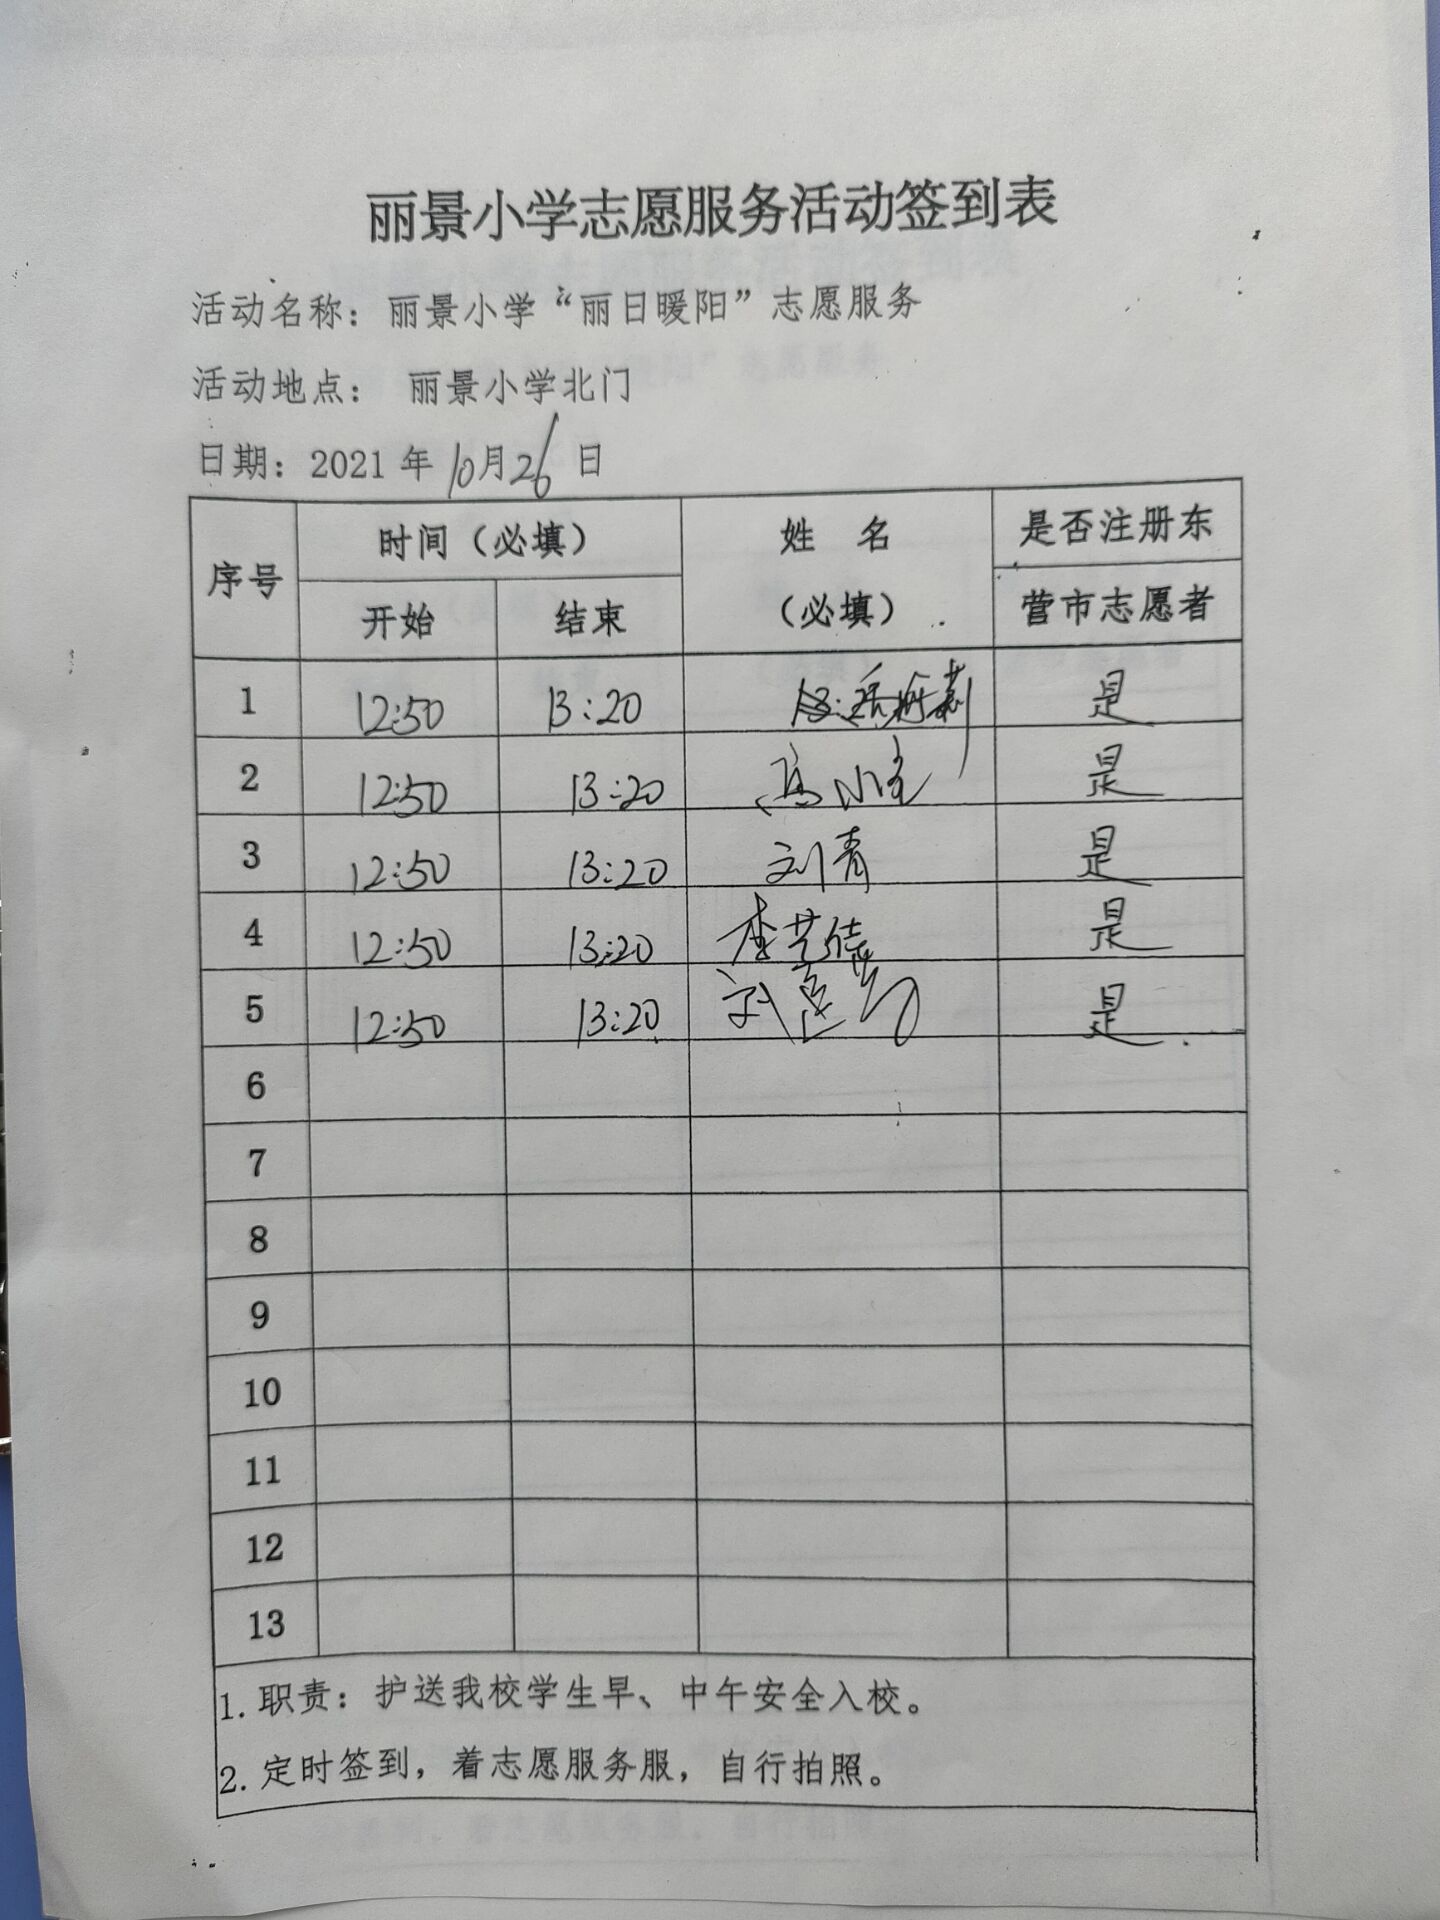 丽景小学志愿服务活动签到表
活动名称：丽景小学“丽日暖阳”志愿服务
活动地点： 丽景小学北门
日期：2021年10月26日
序号 时间（必填） 姓 名 是否注册东
开始 结束 （必填） 营市志愿者
1 12:50 13:20 是
2 12:50 13:20 是
3 12:50 13:20 刘青 是
4 12:50 13:20 李艺倩 是
5 12:50 13:20 刘 是
6
7
8
9
10
11
12
13
1. 职责：护送我校学生早、中午安全入校。
2. 定时签到，着志愿服务服，自行拍照。